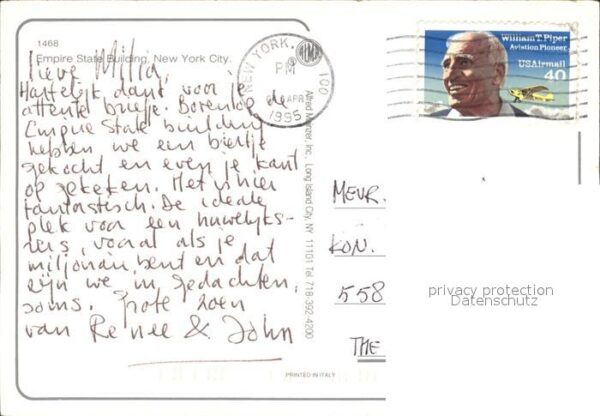 1468
Empire State Building, New York City.
Lieve Millia,
Hartelijk dank voor je
attente briefje. Bovenop de
Empire State building
hebben we een biertje
gekocht en even je kant
op gekeken. Het is hier
fantastisch. De ideale
plek voor een huwelijks-
reis, vooral als je
miljonair bent en dat
zijn we in gedachten,
soms. Grote zoen
van Renee & John
NEW YORK, NY 100
PM
APR
1995
Alfred Mainzer, Inc., Long Island City, NY 11101 Tel. 718-392-4200
William T. Piper
Aviation Pioneer
USAirmail
40
MEVR.
KON.
558
THE
privacy protection
Datenschutz
PRINTED IN ITALY